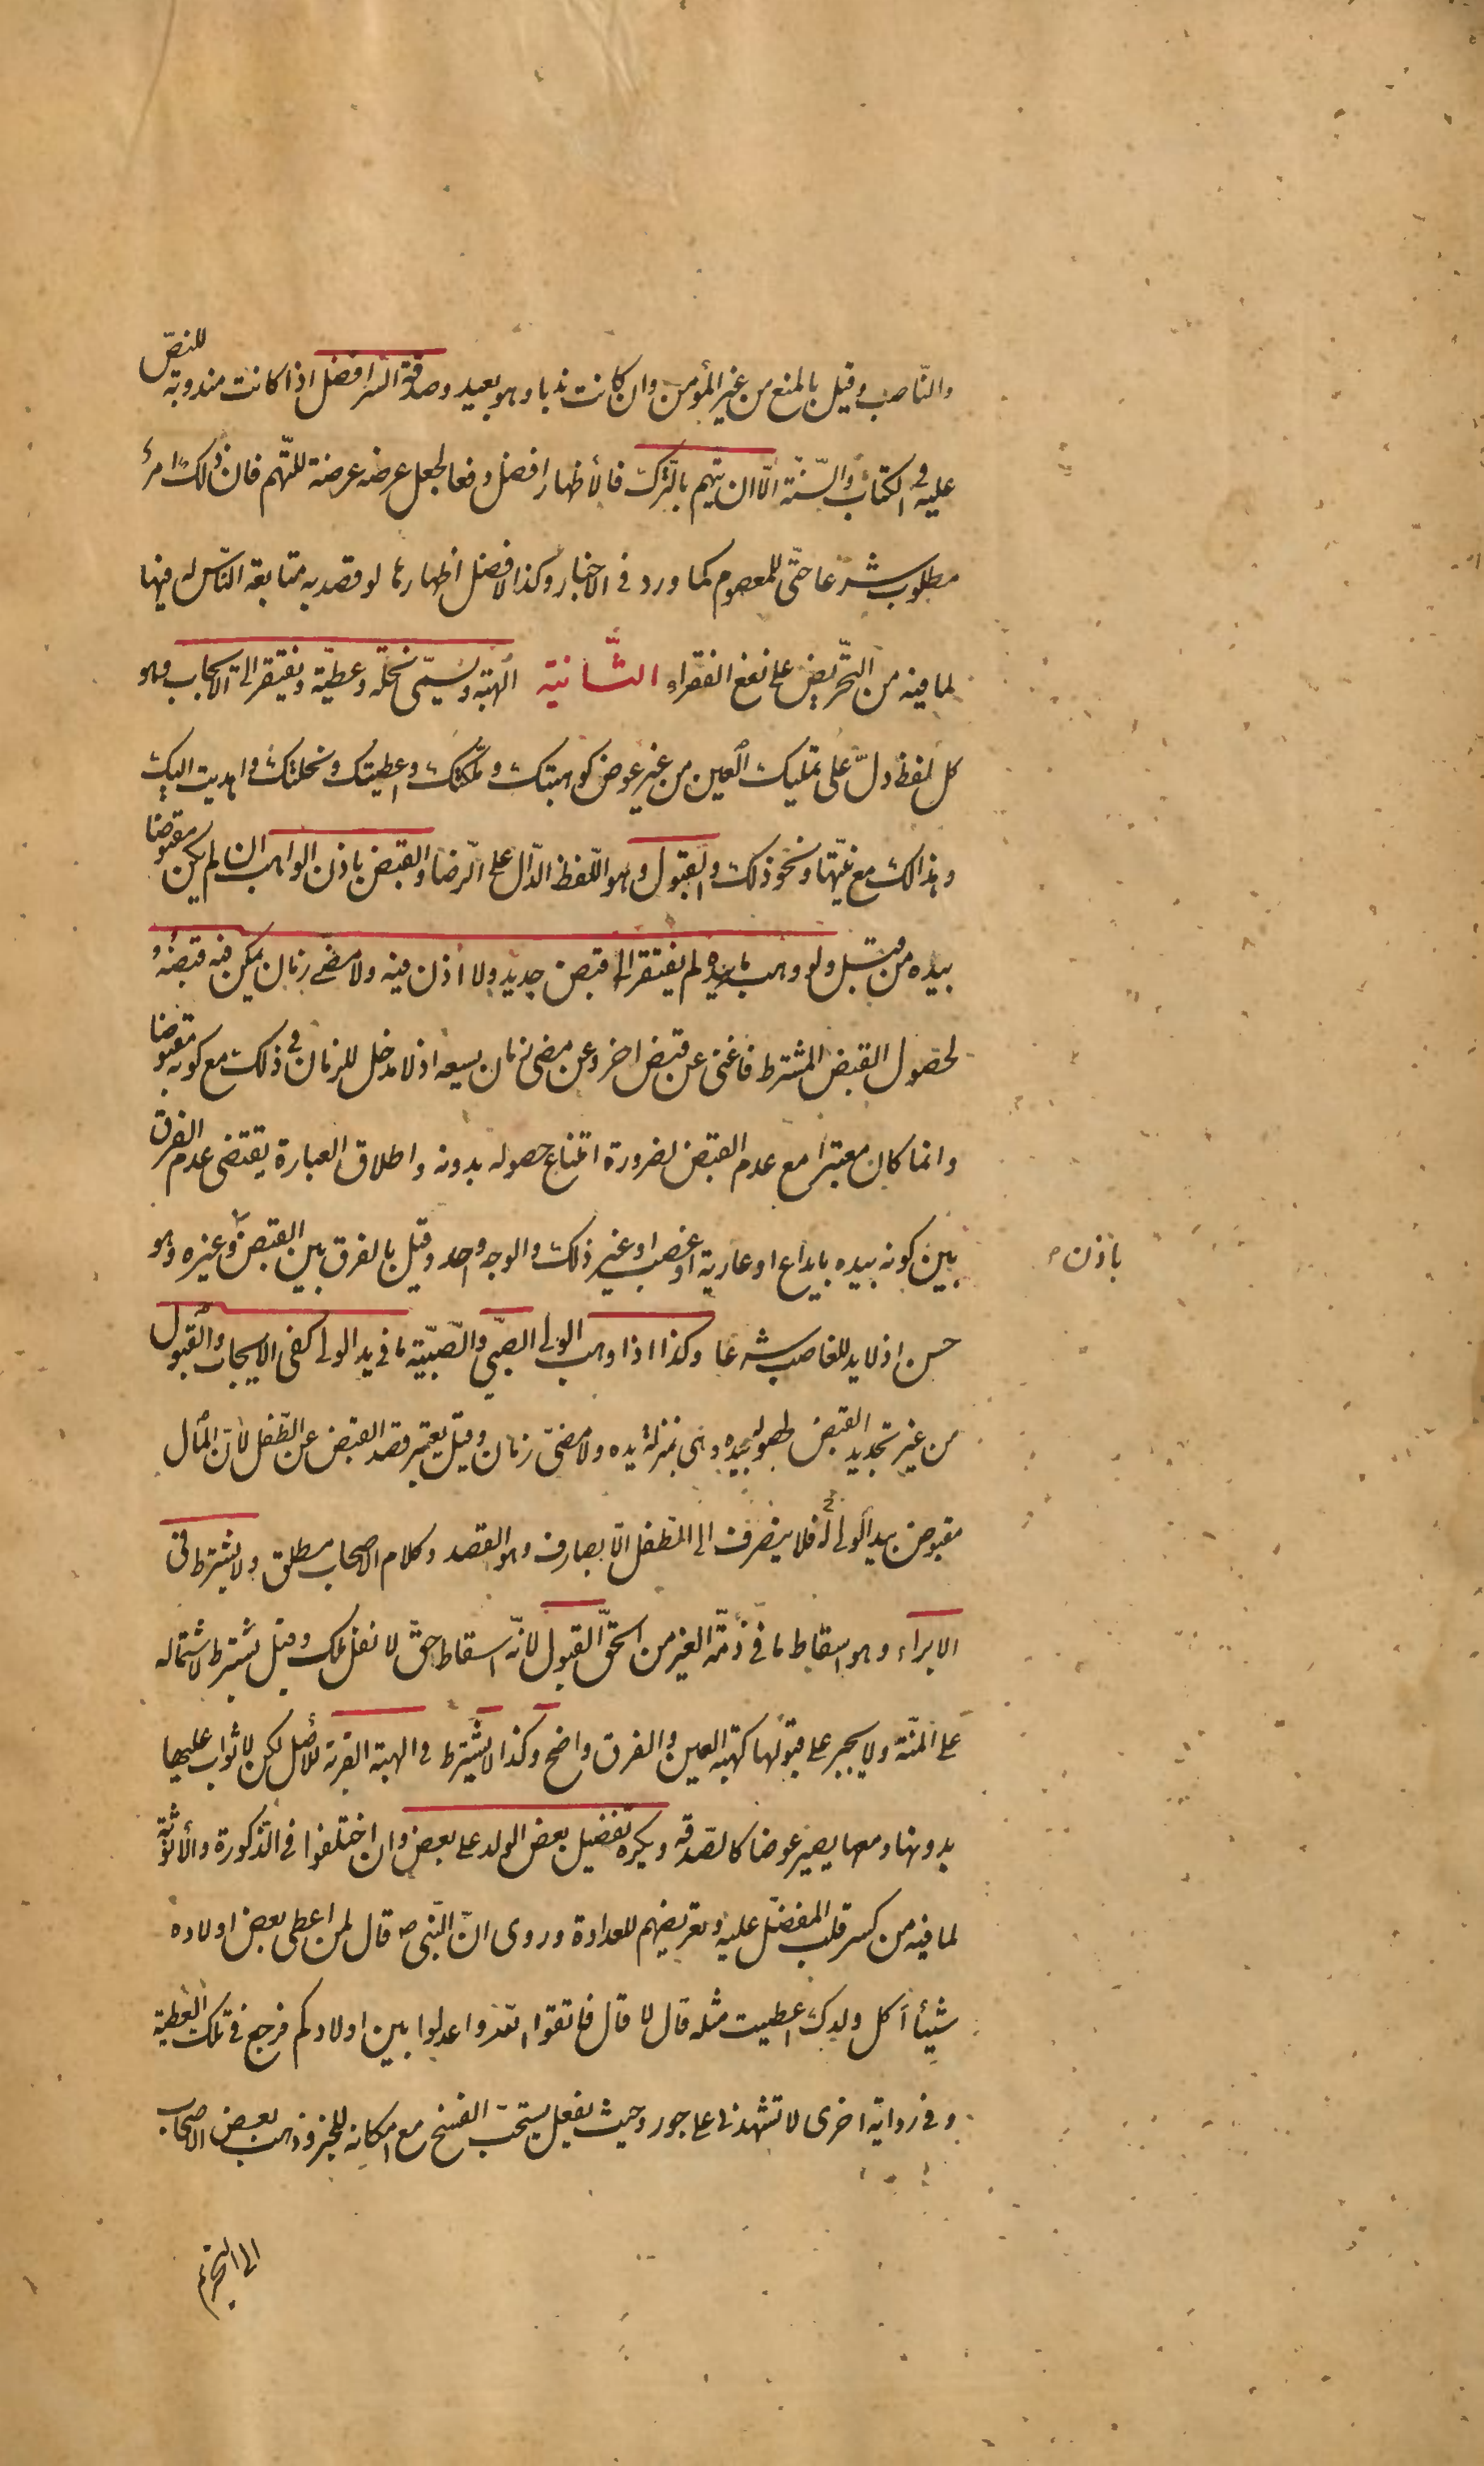 والنّاصب وقيل بالمنع من غير المؤمن وان كانت ندبا وهو بعيد وصدقة السّر افضل اذا كانت مندوبة للنصّ
عليه في الكتاب والسّنّة الّا ان يتهم بالتّرك فالأظهار افضل دفعا لجعل عرضه عرضة للتّهم فان ذلك امر
مطلوب شرعا حتّى للمعصوم كما ورد في الاخبار وكذا الافضل اظهارها لو قصد به متابعة النّاس له فيها
لما فيه من التّحريض على نفع الفقراء الثّانية الهبة وتسمّى نحلة وعطيّة ويفتقر الى الايجاب وهو
كل لفظ دلّ على تمليك العين من غير عوض كوهبتك وملّكتك واعطيتك ونحلتك واهديت اليك
وهذا لك مع نيّتها ونحو ذلك والقبول وهو اللّفظ الدّال على الرّضا والقبض باذن الواهب ان لم يكن مقبوضا
بيده من قبل ولو وهب ما بيده لم يفتقر الى قبض جديد ولا اذن فيه ولا مضىّ زمان يمكن فيه قبضه و
لحصول القبض المشترط فاغنى عن قبض اخر وعن مضى زمان يسعه اذ لا مدخل للزمان في ذلك مع كونه مقبوضا
وانما كان معتبرا مع عدم القبض لضرورة امتناع حصوله بدونه واطلاق العبارة يقتضى عدم الفرق
بين كونه بيده بايداع او عارية او غصب او غير ذلك والوجه واحد وقيل بالفرق بين القبض وغيره وهو
باذن
حسن اذ لا يد للغاصب شرعا وكذا اذا وهب الولى الصّبّى والصّبيّة ما في يد الولى كفى الايجاب والقبول
من غير تجديد القبض لحصوله بيده وهى بمنزلة يده ولا مضىّ زمان وقيل يعتبر قصد القبض عن الطّفل لأنّ المال
مقبوض بيد الولى له فلا ينصرف الى الطّفل الّا بصارف وهو القصد وكلام الاصحاب مطلق ولا يشترط في
الابراء وهو اسقاط ما في ذمّة الغير من الحقّ القبول لانّه اسقاط حقّ لا نقل ملك وقيل يشترط لاشتماله
على المنّة ولا يجبر على قبولها كهبة العين والفرق واضح وكذا لا يشترط في الهبة القربة للأصل لكن لا ثواب عليها
بدونها ومعها يصير عوضا كالصّدقه ويكره تفضيل بعض الولد على بعض وان اختلفوا في الذّكورة والأنوثة
لما فيه من كسر قلب المفضّل عليه وتعريضهم للعداوة وروى انّ النّبى ص قال لمن اعطى بعض اولاده
شيئا أكل ولدك اعطيت مثله قال لا قال فاتقوا الله واعدلوا بين اولادكم فرجع في تلك العطية
وفي رواية اخرى لا تشهدنى على جور وحيث يفعل يستحبّ الفسخ مع امكانه للخبر وذهب بعض الاصحاب
الى التحريم